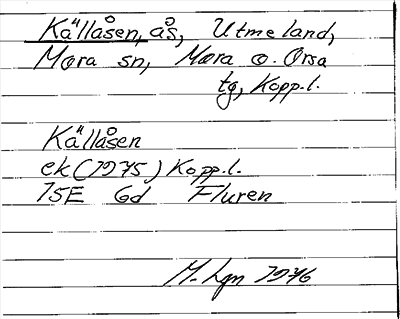 Källåsen, ås, Utmeland,
Mora sn, Mora o. Orsa
tg, Kopp.l.
Källåsen
ek (1975) Kopp.l.
15E 6d Fluren
M. Lgn 1976